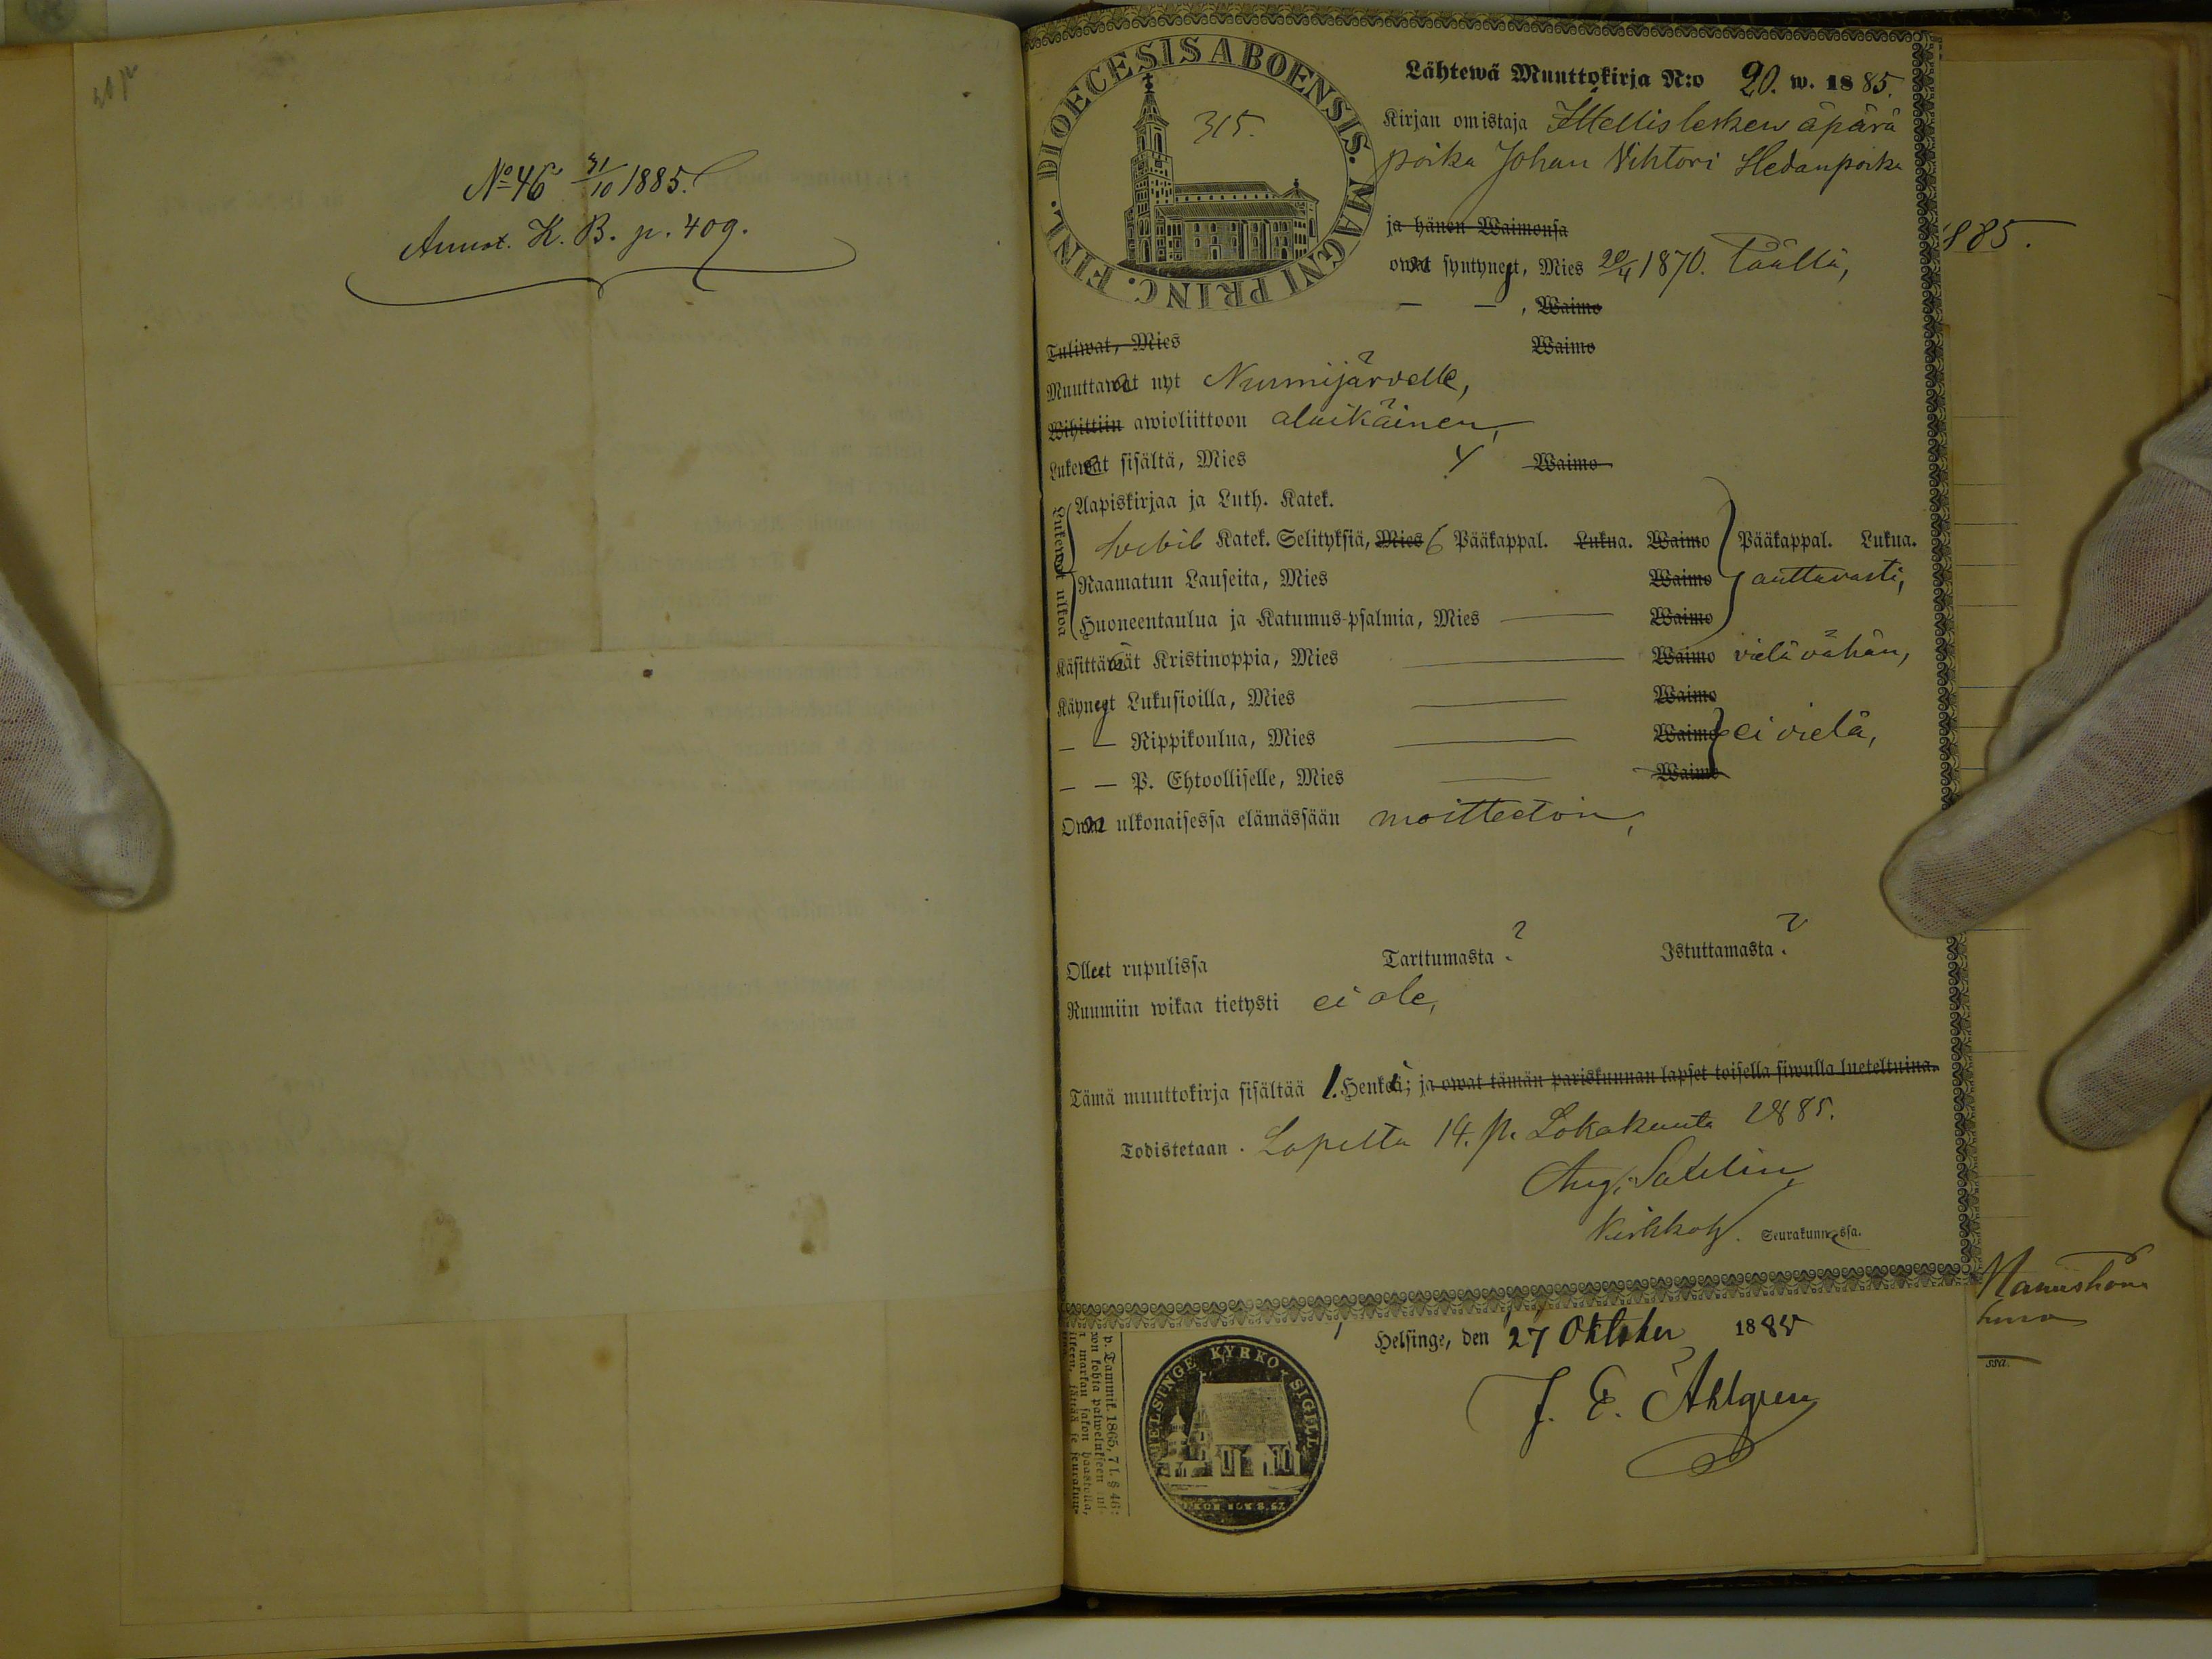 No 46 31/10 1885.
Annot. K. B. p. 409.
DIOECESIS ABOENSIS. MAGNI PRINC. FINL.
315.
Lähtewä Muuttokirja N:o 20. w. 1885.
Kirjan omistaja Itellislesken äpärä
poika Johan Vihtori Hedanpoika
ja hänen Waimonsa
owat syntynet, Mies 20/4 1870. Täällä,
— — , Waimo
Tuliwat, Mies Waimo
Muuttawat nyt Nurmijärvelle,
Wihittiin awioliittoon alaikäinen,
Lukewat sisältä, Mies Y Waimo
Lukewat ulkoa
Aapiskirjaa ja Luth. Katek.
Svebil Katek. Selityksiä, Mies 6 Pääkappal. Lukua. Waimo Pääkappal. Lukua.
Raamatun Lauseita, Mies Waimo auttavasti,
Huoneentaulua ja Katumus-psalmia, Mies — Waimo
Käsittäwät Kristinoppia, Mies — Waimo vielä vähän,
Käynet Lukusioilla, Mies — Waimo
— — Rippikoulua, Mies — Waimo ei vielä,
— — P. Ehtoolliselle, Mies — Waimo
Owat ulkonaisessa elämässään moitteetoin,
Olleet rupulissa Tarttumasta ? Istuttamasta ?
Ruumiin wikaa tietysti ei ole,
Tämä muuttokirja sisältää 1. Henkeä; ja owat tämän pariskunnan lapset toisella siwulla lueteltuina.
Todistetaan. Lopella 14. p. Lokakuuta 1885.
Aug.
Kirkkoh. Seurakunnassa.
Helsinge, den 27 Oktober 1885
J. E. Ahlgren
HELSINGE KYRKO SIGILL
p. Tammik. 1865, 7 l. § 46:
885.
ssa.